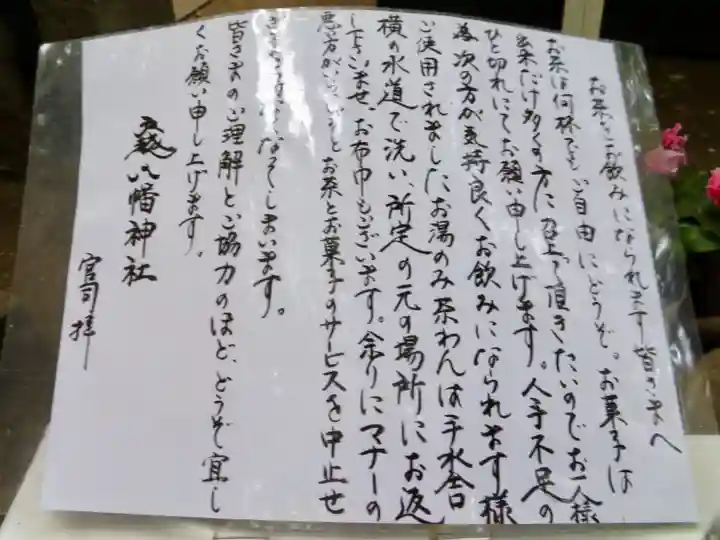 お茶をお飲みになられます皆さまへ
お茶は何杯でもご自由にどうぞ。お菓子は
出来るだけ多くの方に召上って頂きたいのでお一人様
ひと切れにてお願い申し上げます。人手不足の
為、次の方が気持良くお飲みになられます様
ご使用されましたお湯のみ茶わんは手水舎
横の水道で洗い、所定の元の場所にお返
して下さいませ。お布巾もございます。余りにマナーの
悪い方がいらっしゃるとお茶とお菓子のサービスを中止せ
ざるをえなくなってしまいます。
皆さまのご理解とご協力のほど、どうぞ宜し
くお願い申し上げます。
八幡神社
宮司 拝